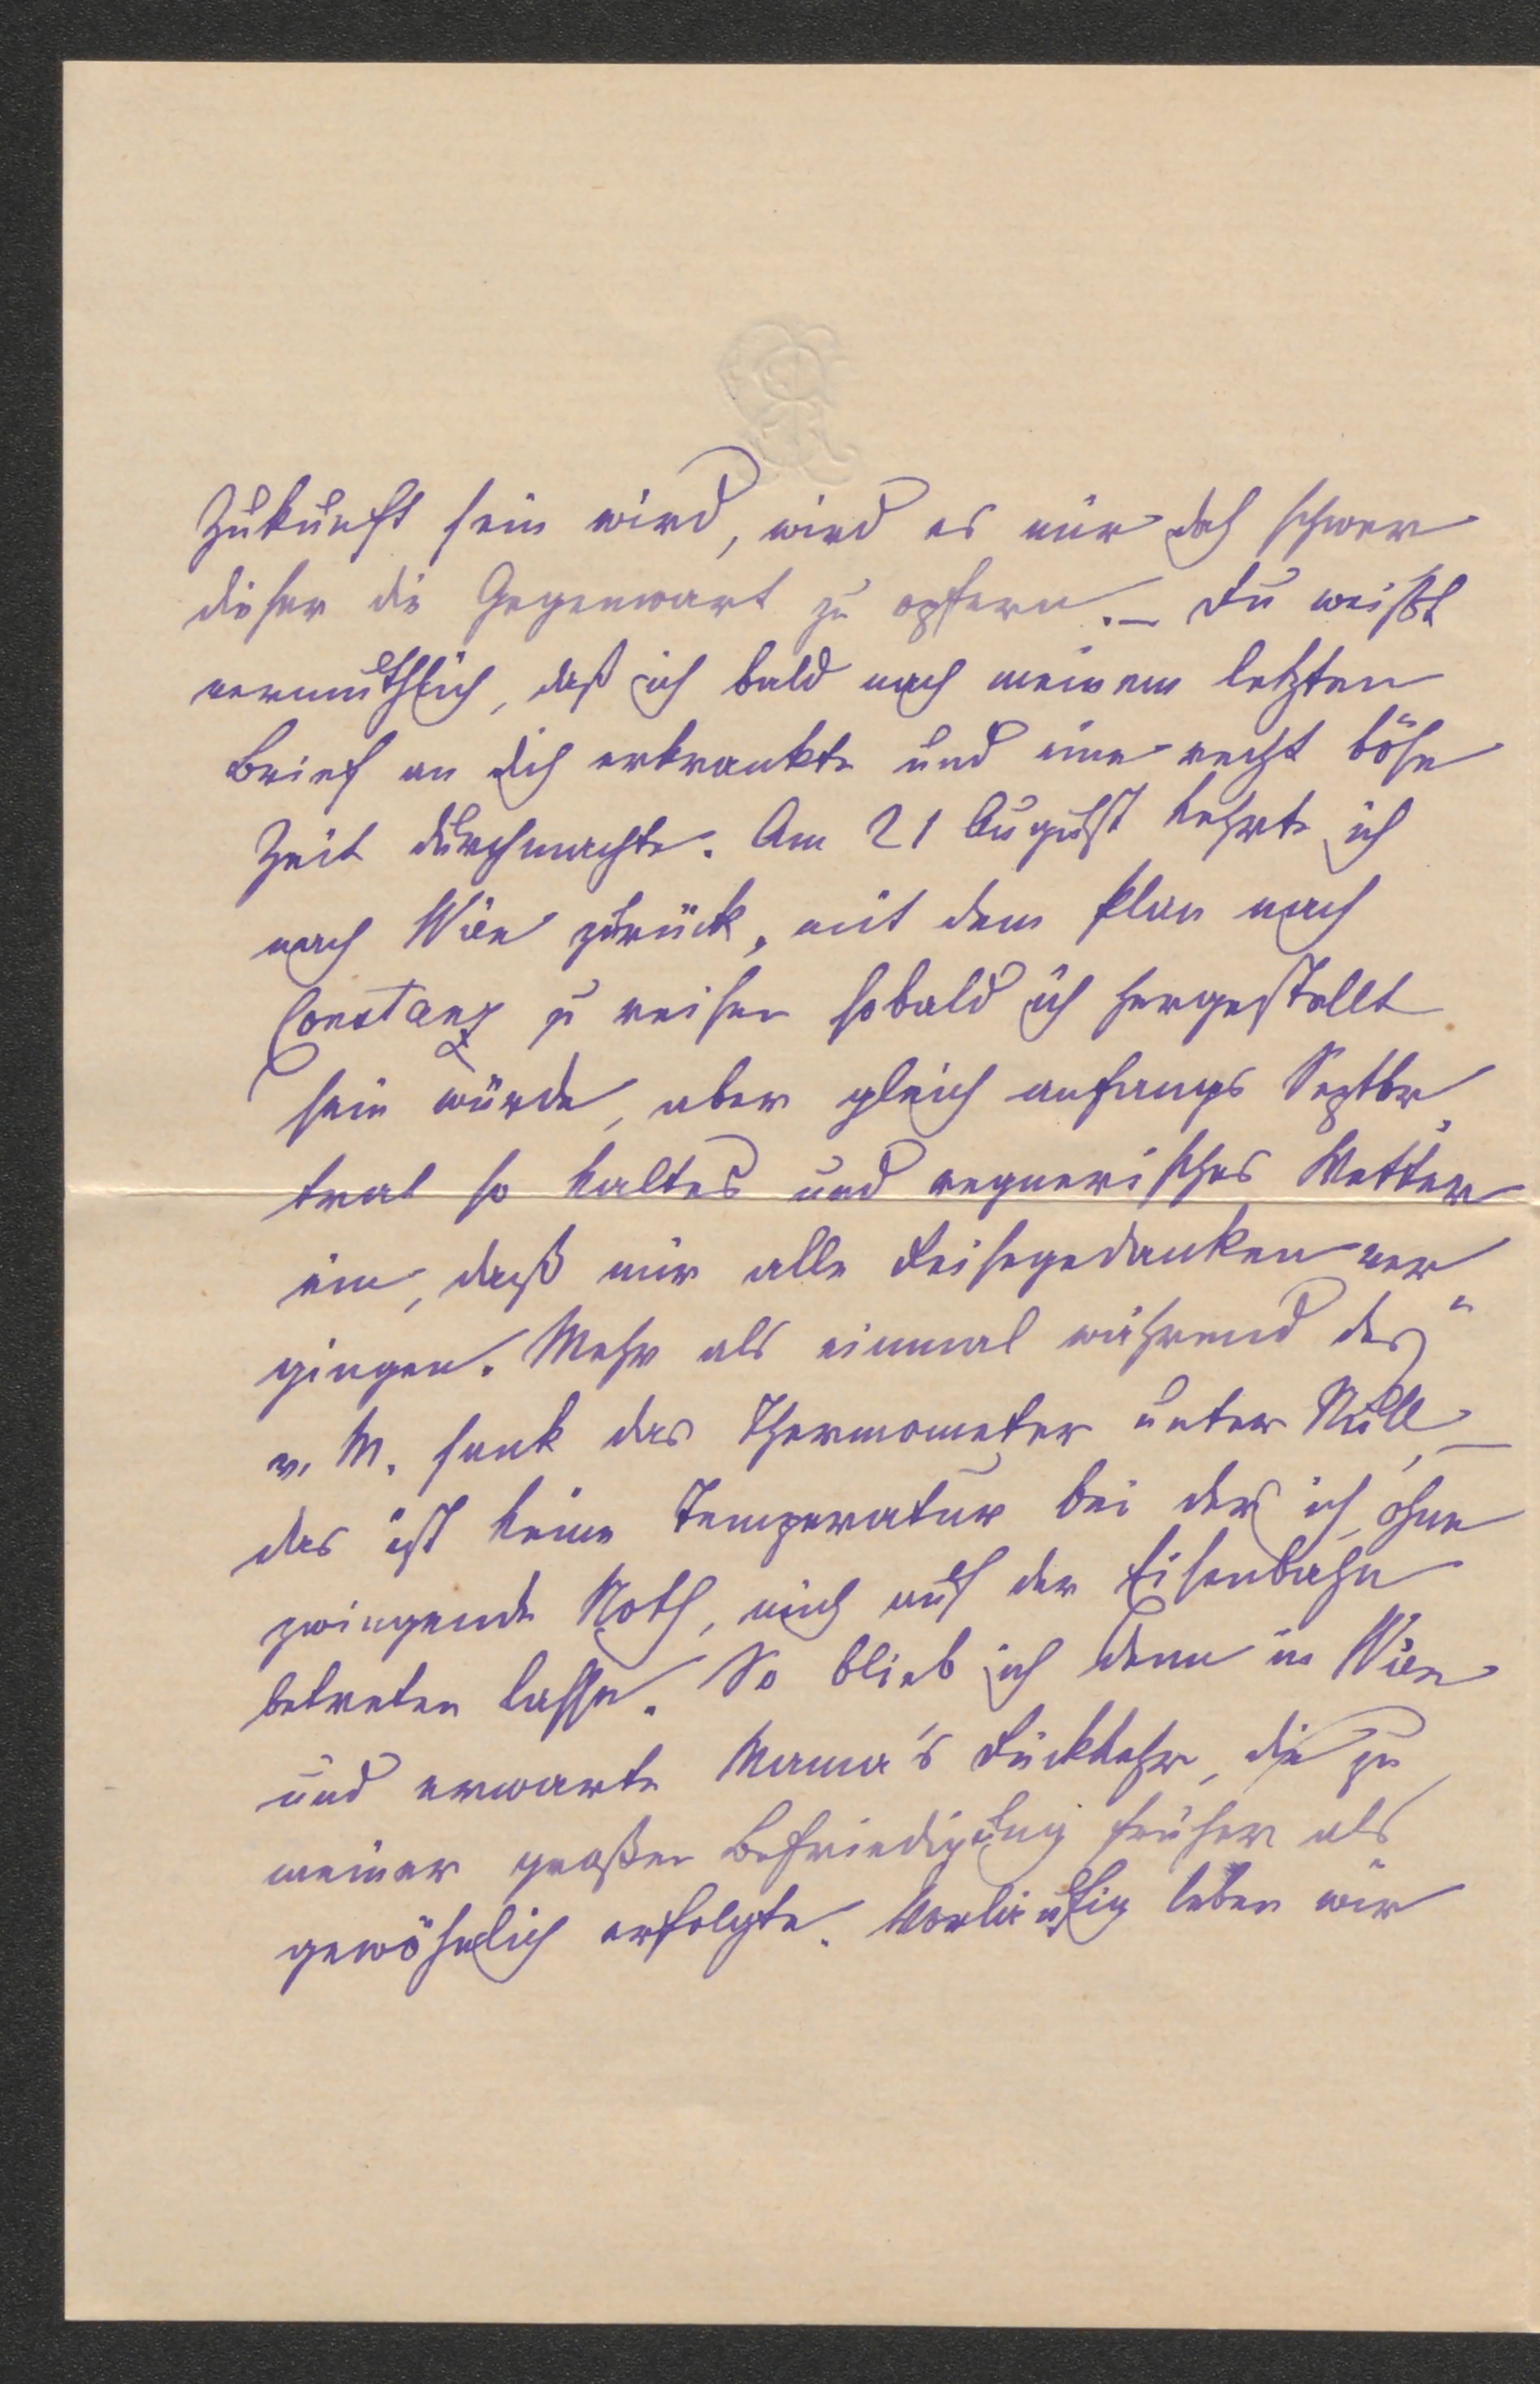 Zukunft sein wird, wird es mir doch schwer
dieser die Gegenwart zu opfern. – Du weißt
vermuthlich, daß ich bald nach meinem letzten
Brief an dich erkrankte und eine recht böse
Zeit durchmachte. Am 21 August kehrte ich
nach Wien zurück, mit dem Plan nach
Constanz zu reisen sobald ich hergestellt
sein würde, aber gleich anfangs Septbr
trat so kaltes und regnerisches Wetter
ein, daß mir alle Reisegedanken ver
gingen. Mehr als einmal während des
v. M. sank das Thermometer unter Null –
das ist keine Temperatur bei der ich, ohne
zwingende Noth, mich auf der Eisenbahn
betreten lasse. So blieb ich denn in Wien
und erwarte Mama's Rückkehr, die zu
meiner großen Befriedigung früher als
gewöhnlich erfolgte. Vorläufig leben wir